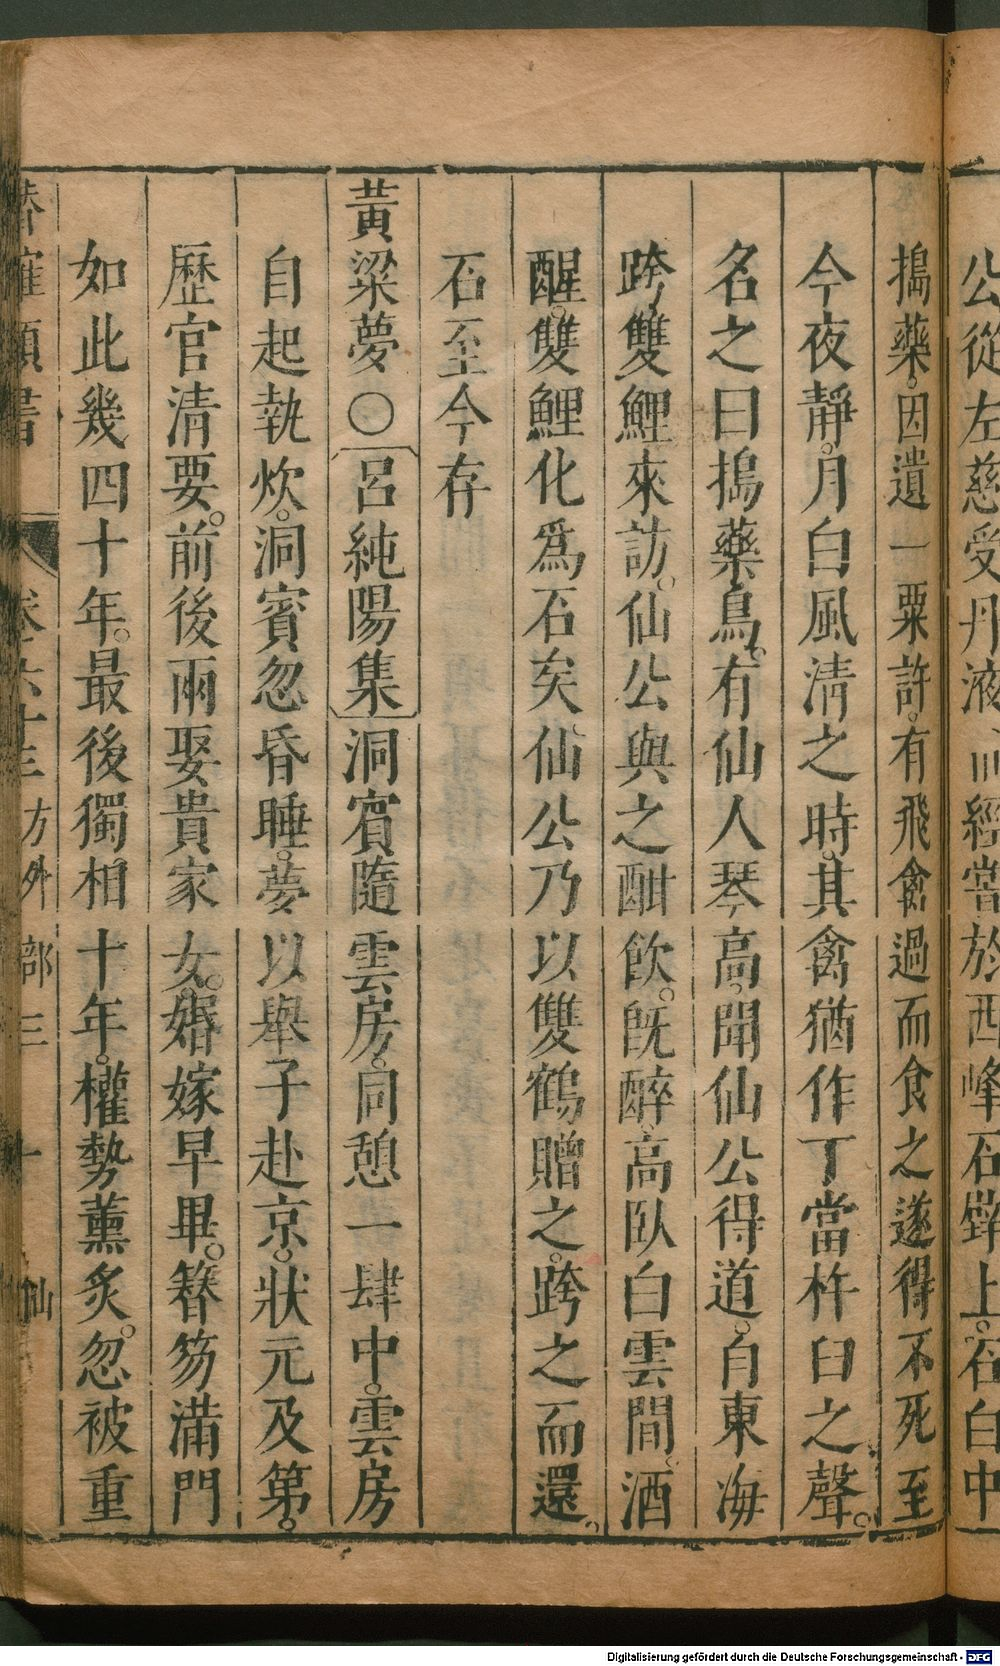 公從左慈受丹液
經嘗於西峰石壁上石臼中
搗藥因遺一粟許有飛禽過而食之遂得不死至
今夜靜月白風清之時其禽猶作丁當杵臼之聲
名之曰搗藥鳥有仙人琴高聞仙公得道自東海
跨雙鯉來訪仙公與之酣飲旣醉高臥白雲間酒
醒雙鯉化爲石矣仙公乃以雙鶴贈之跨之而還
石至今存
黃粱夢〇呂純陽集洞賓隨雲房同憩一肆中雲房
自起執炊洞賓忽昏睡夢以舉子赴京狀元及第
歷官清要前後兩娶貴家女婚嫁早畢簪笏滿門
如此幾四十年最後獨相十年權勢薰炙忽被重
潛確類書 卷六十三 方外部三 十 仙
Digitalisierung gefördert durch die Deutsche Forschungsgemeinschaft - DFG